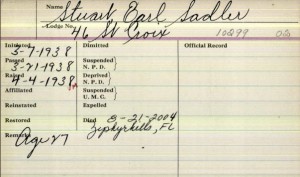 Name Stuart Earl Sadler
Lodge No. 46 St Croix 10299
Initiated 3-7-1938 Dimitted Official Record
Passed 3-21-1938 Suspended N. P. D.
Raised 4-4-1938 Deprived N. P. D.
Affiliated Suspended U. M. C.
Reinstated Expelled
Restored Died 3-21-2004
Remarks Age 27 Zephyrhills, FL